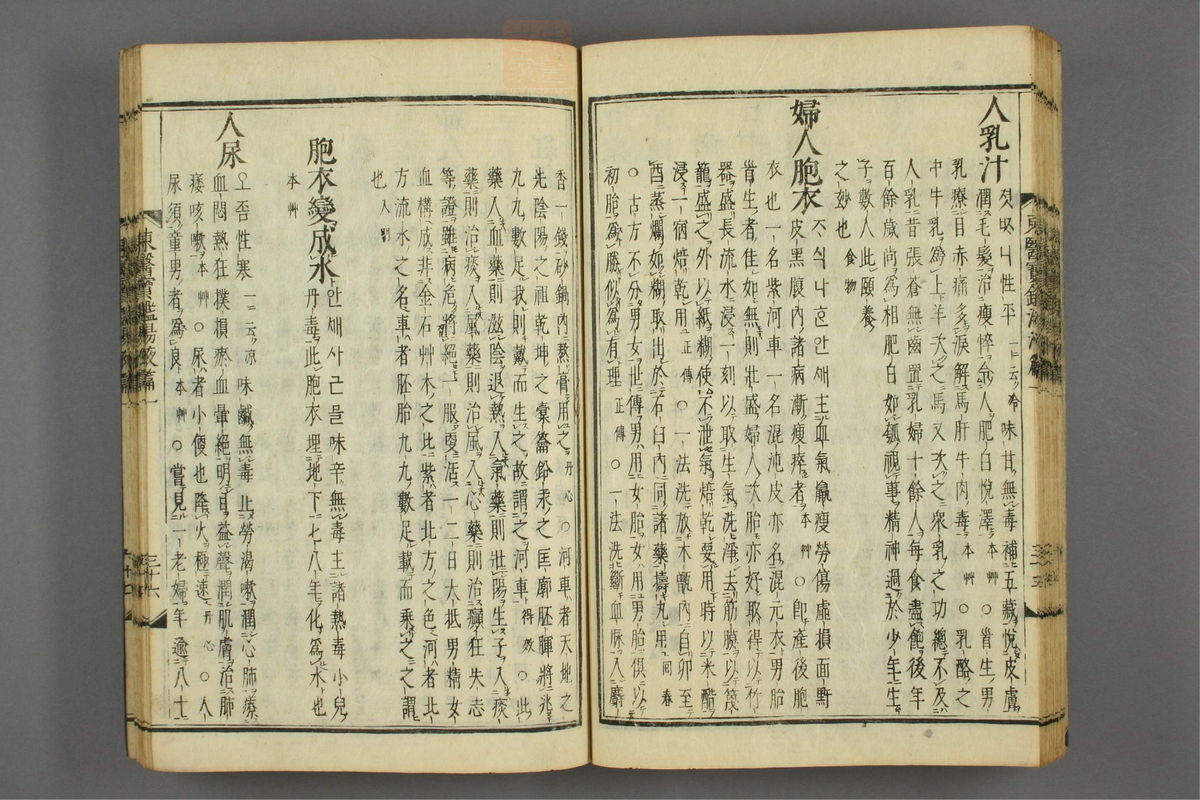 人乳汁 졋믈 니性平 一云冷 味甘無毒補五藏悅皮膚
潤毛髮治瘦悴令人肥白悅澤 本艸 ○首生男
乳療目赤痛多淚解馬肝牛肉毒 本艸 ○乳酪之
中牛乳爲上羊次之馬又次之衆乳之功總不及
人乳昔張蒼無齒置乳婦十餘人每食盡飽後年
百餘歲尚爲相肥白如瓠視事精神過於少年生
子數人此頤養
之妙也 食物
婦人胞衣 안세主血氣羸瘦勞傷虛損面䵟
皮黑腹內諸病漸瘦瘁者 本艸 ○卽產後胞
衣也一名紫河車一名混沌皮亦名混元衣男胎
首生者佳如無則壯盛婦人次胎亦好取得以竹
器盛長流水浸一刻以取生氣洗淨去筋膜以篾
籠盛之外以紙糊使不泄氣焙乾要用時以米醋
浸一宿焙乾用 正傳 ○一法洗放木甑內自卯至
酉蒸爛如糊取出於石臼內同諸藥擣丸用 回春
○古方不分男女世傳男用女胎女用男胎俱以
初胎爲勝似爲有理 正傳 ○一法洗斷血脉入麝
香一錢砂鍋內熬膏用之 丹心 ○河車者天地之
先陰陽之祖乾坤之槖籥鉛汞之匡廓胚暉將兆
九九數足我則載而生之故謂之河車 得效 ○此
藥人血藥則滋陰退熱入氣藥則壯陽生子入痰
藥則治痰入風藥則治風入心藥則治癲狂失志
等證雖病危將絕一二服更活一二日大抵男精女
血構成非金石艸木之比紫者北方之色河者北
方流水之名車者胚胎九九數足載而乘之之謂
也 入門
胞衣變成水 안세사근믈味辛無毒主諸熱毒小兒
丹毒此胞衣埋地下七八年化爲水也
本艸
人尿 오좀性寒 一云凉 味鹹無毒止勞渴嗽潤心肺療
血悶熱狂撲損瘀血暈絕明目益聲潤肌膚治肺
痿咳嗽 本艸 ○尿者小便也降火極速 丹心 ○人
尿須童男者爲良 本艸 ○嘗見一老婦年逾八十
東醫寶鑑湯液篇 一
三十六